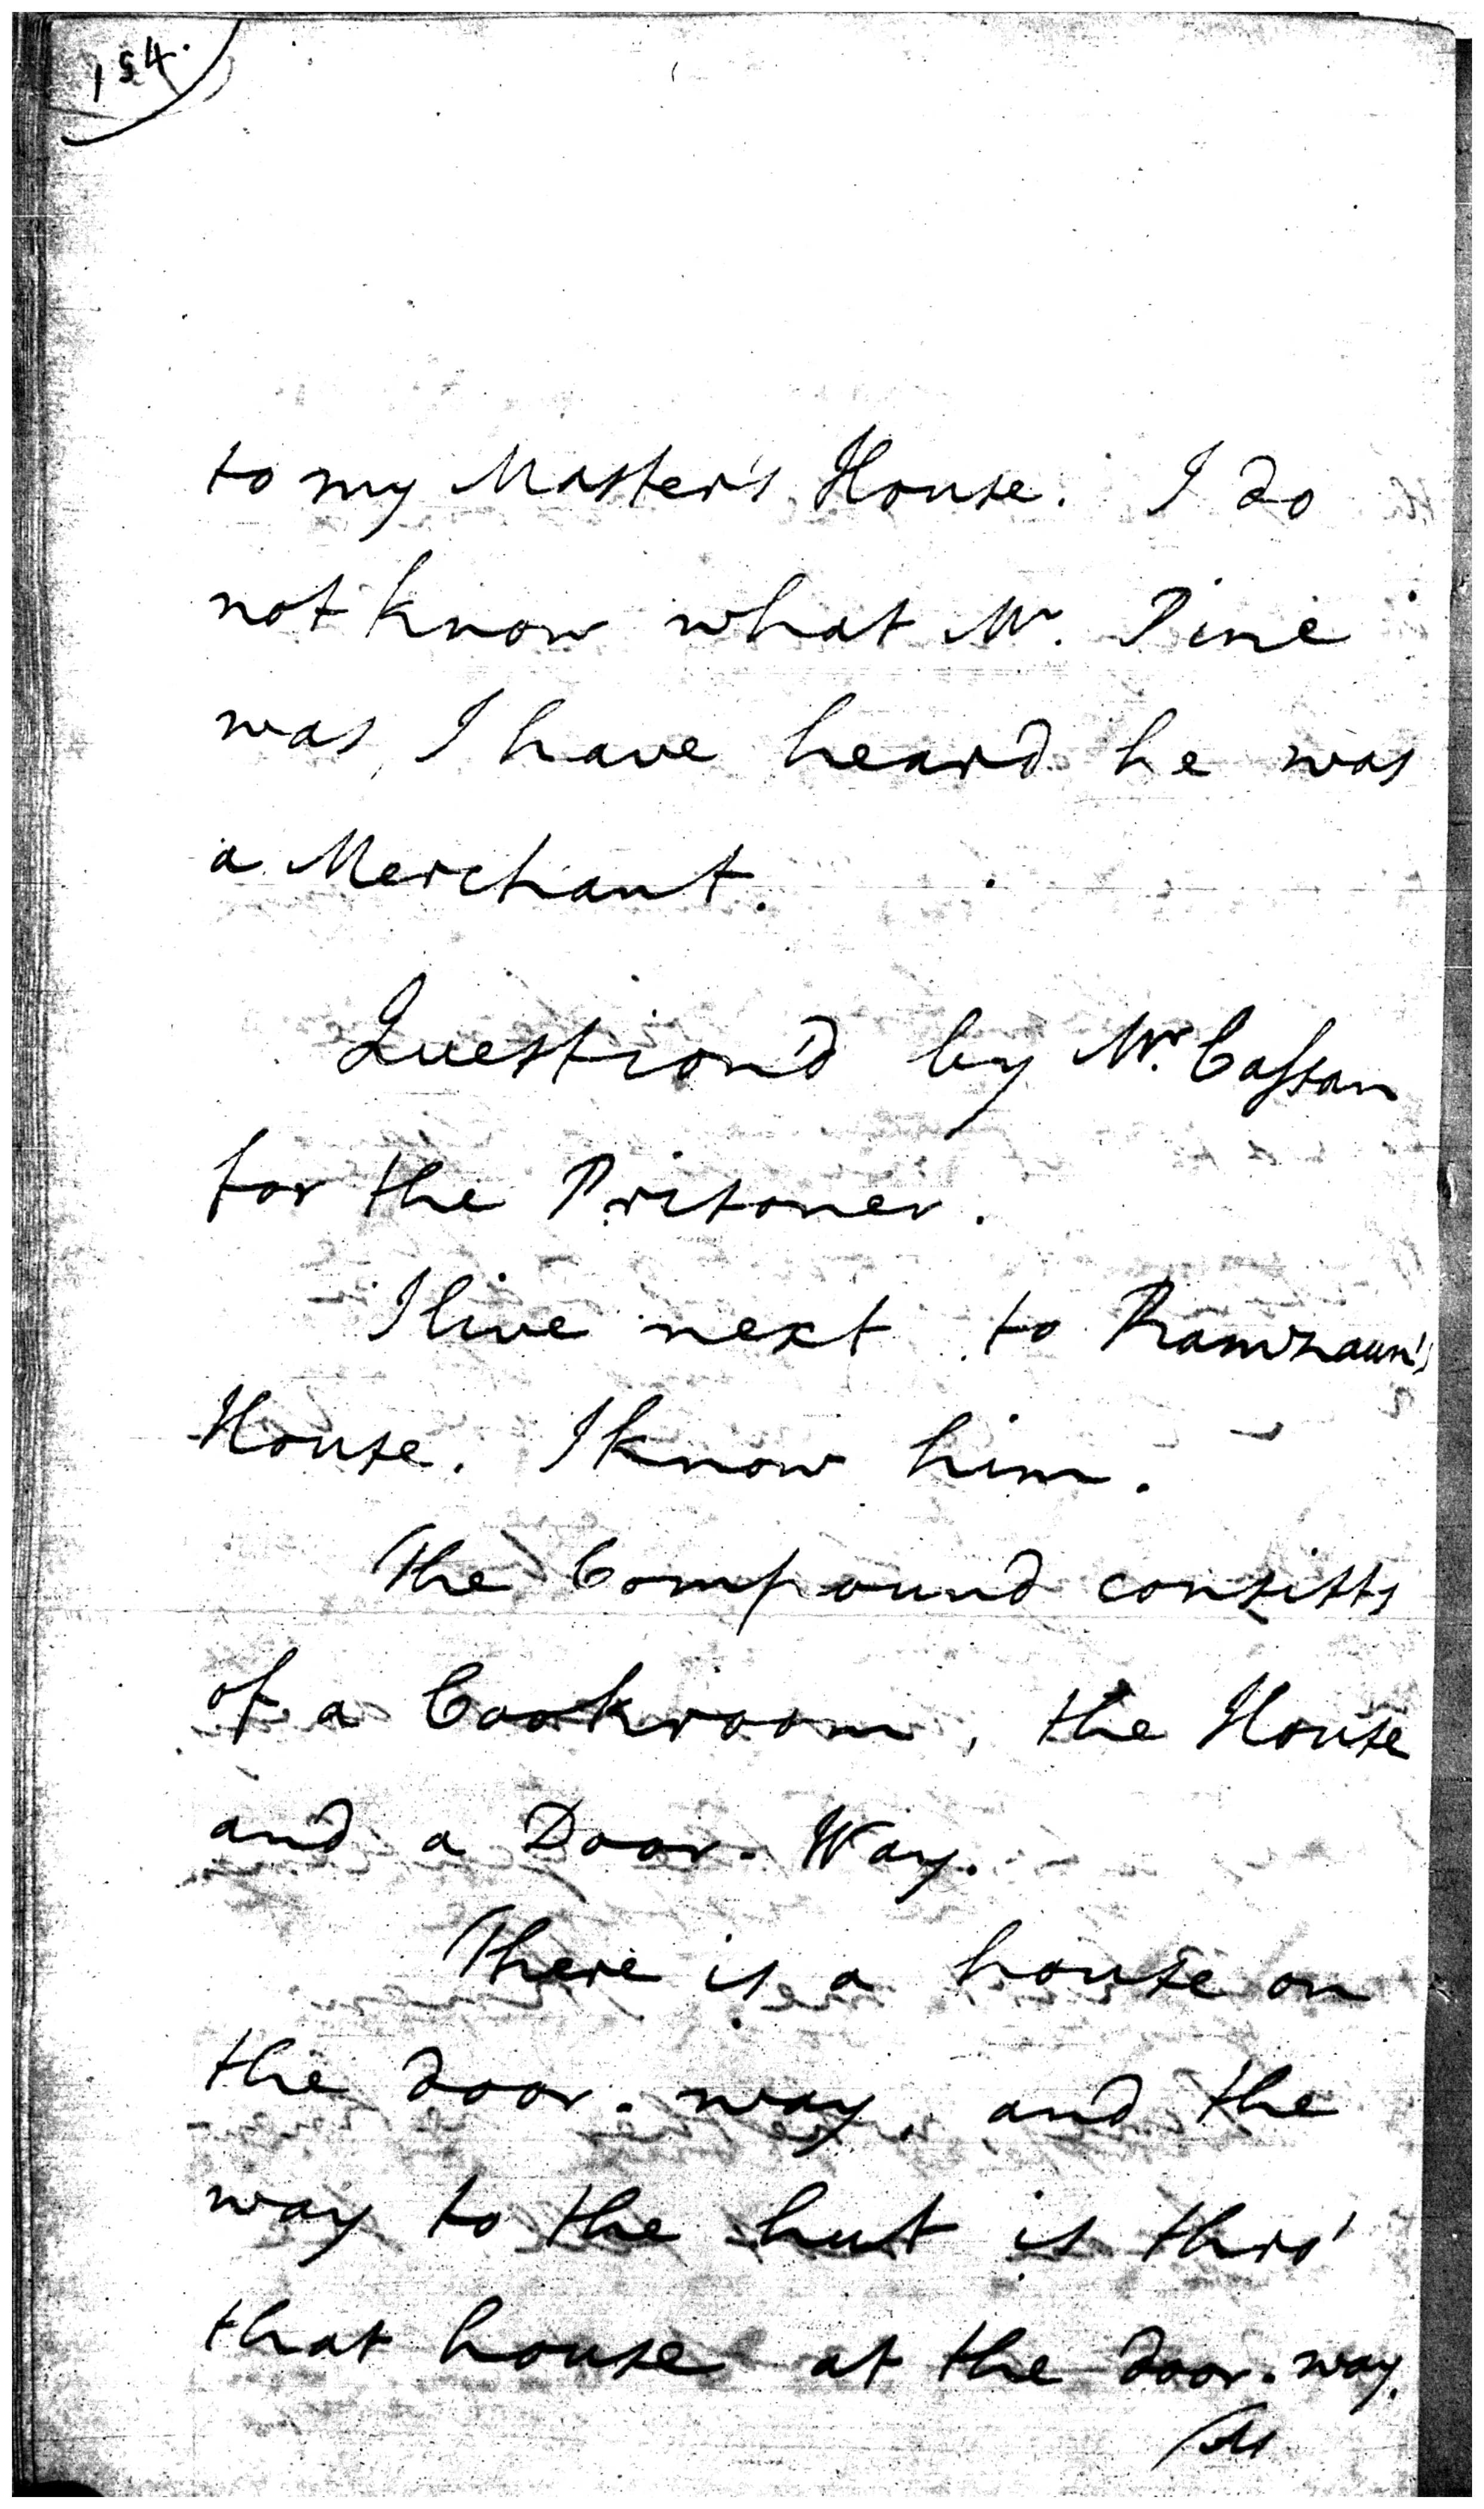 154.
to my Master's House. I do
not know what Mr. Pine
was, I have heard he was
a Merchant.
Question'd by Mr. Caſsan
for the Prisoner.
I live next to Ramzaun's
House. I know him.
The Compound consists
of a Cookroom, the House
and a Door-Way.
There is a house on
the door-way, and the
way to the hut is thro'
that house at the door-way.